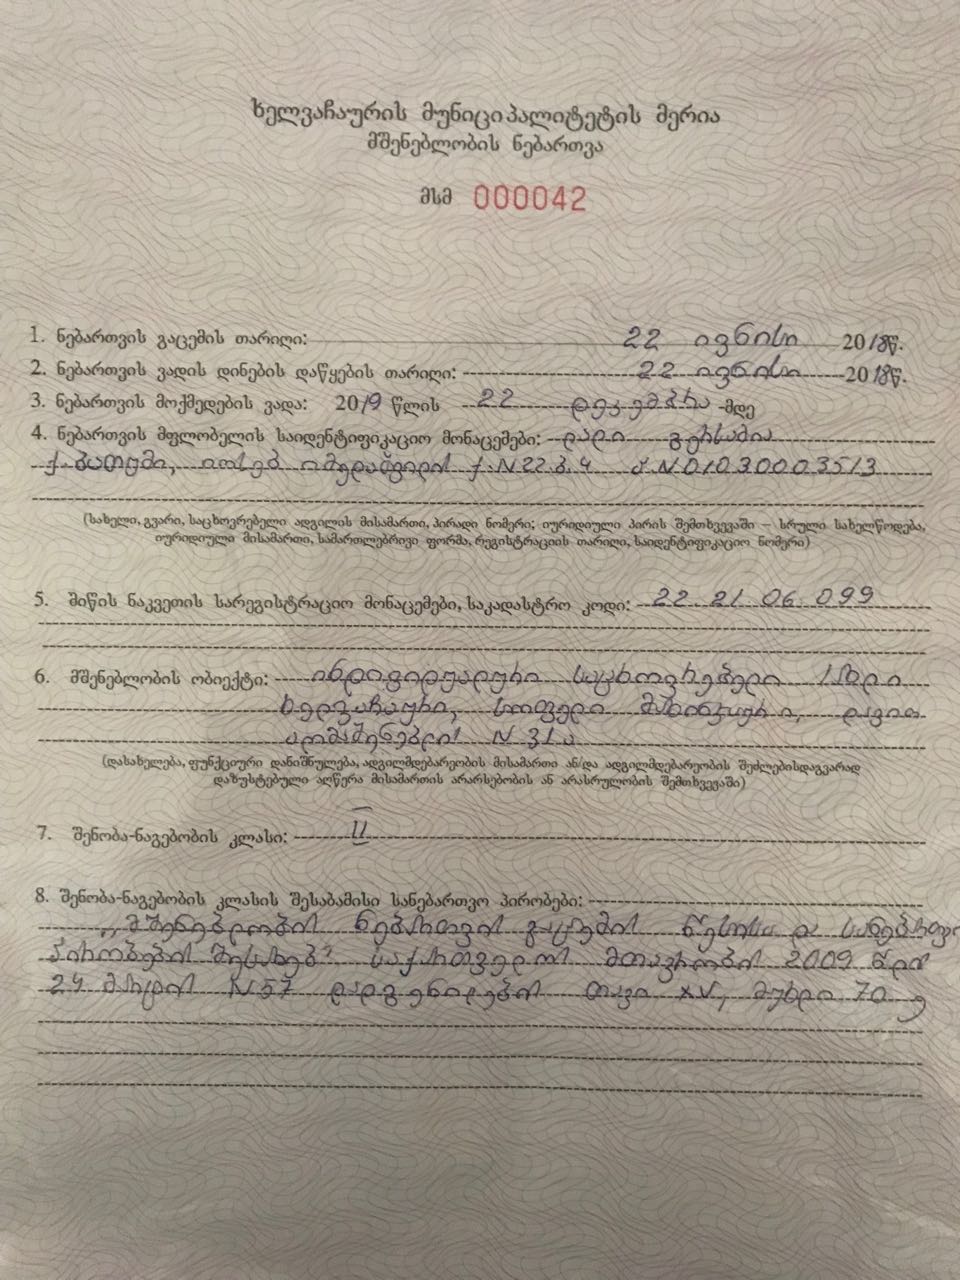 ხელვაჩაურის მუნიციპალიტეტის მერია
მშენებლობის ნებართვა
მსმ 000042
1. ნებართვის გაცემის თარიღი: 22 ივნისი 2018წ.
2. ნებართვის ვადის დინების დაწყების თარიღი: 22 ივნისი 2018წ.
3. ნებართვის მოქმედების ვადა: 2019 წლის 22 დეკემბრა -მდე
4. ნებართვის მფლობელის საიდენტიფიკაციო მონაცემები: დალი გერსამია
ქ. ბათუმი, იოსებ იმედაშვილის ქ. N22 ბ. 4 პ N 01030003513
(სახელი, გვარი, საცხოვრებელი ადგილის მისამართი, პირადი ნომერი; იურიდიული პირის შემთხვევაში – სრული სახელწოდება,
იურიდიული მისამართი, სამართლებრივი ფორმა, რეგისტრაციის თარიღი, საიდენტიფიკაციო ნომერი)
5. მიწის ნაკვეთის სარეგისტრაციო მონაცემები, საკადასტრო კოდი: 22 21 06 099
6. მშენებლობის ობიექტი: ინდივიდუალური საცხოვრებელი სახლი
ხელვაჩაური, სოფელი მახინჯაური, დავით
აღმაშენებლის N 31ა
(დასახელება, ფუნქციური დანიშნულება, ადგილმდებარეობის მისამართი ან/და ადგილმდებარეობის შეძლებისდაგვარად
დაზუსტებული აღწერა მისამართის არარსებობის ან არასრულობის შემთხვევაში)
7. შენობა-ნაგებობის კლასი: II
8. შენობა-ნაგებობის კლასის შესაბამისი სანებართვო პირობები:
„მშენებლობის ნებართვის გაცემის წესისა და სანებართვო
პირობების შესახებ" საქართველოს მთავრობის 2009 წლის
24 მარტის N57 დადგენილების თავი XV, მუხლი 70